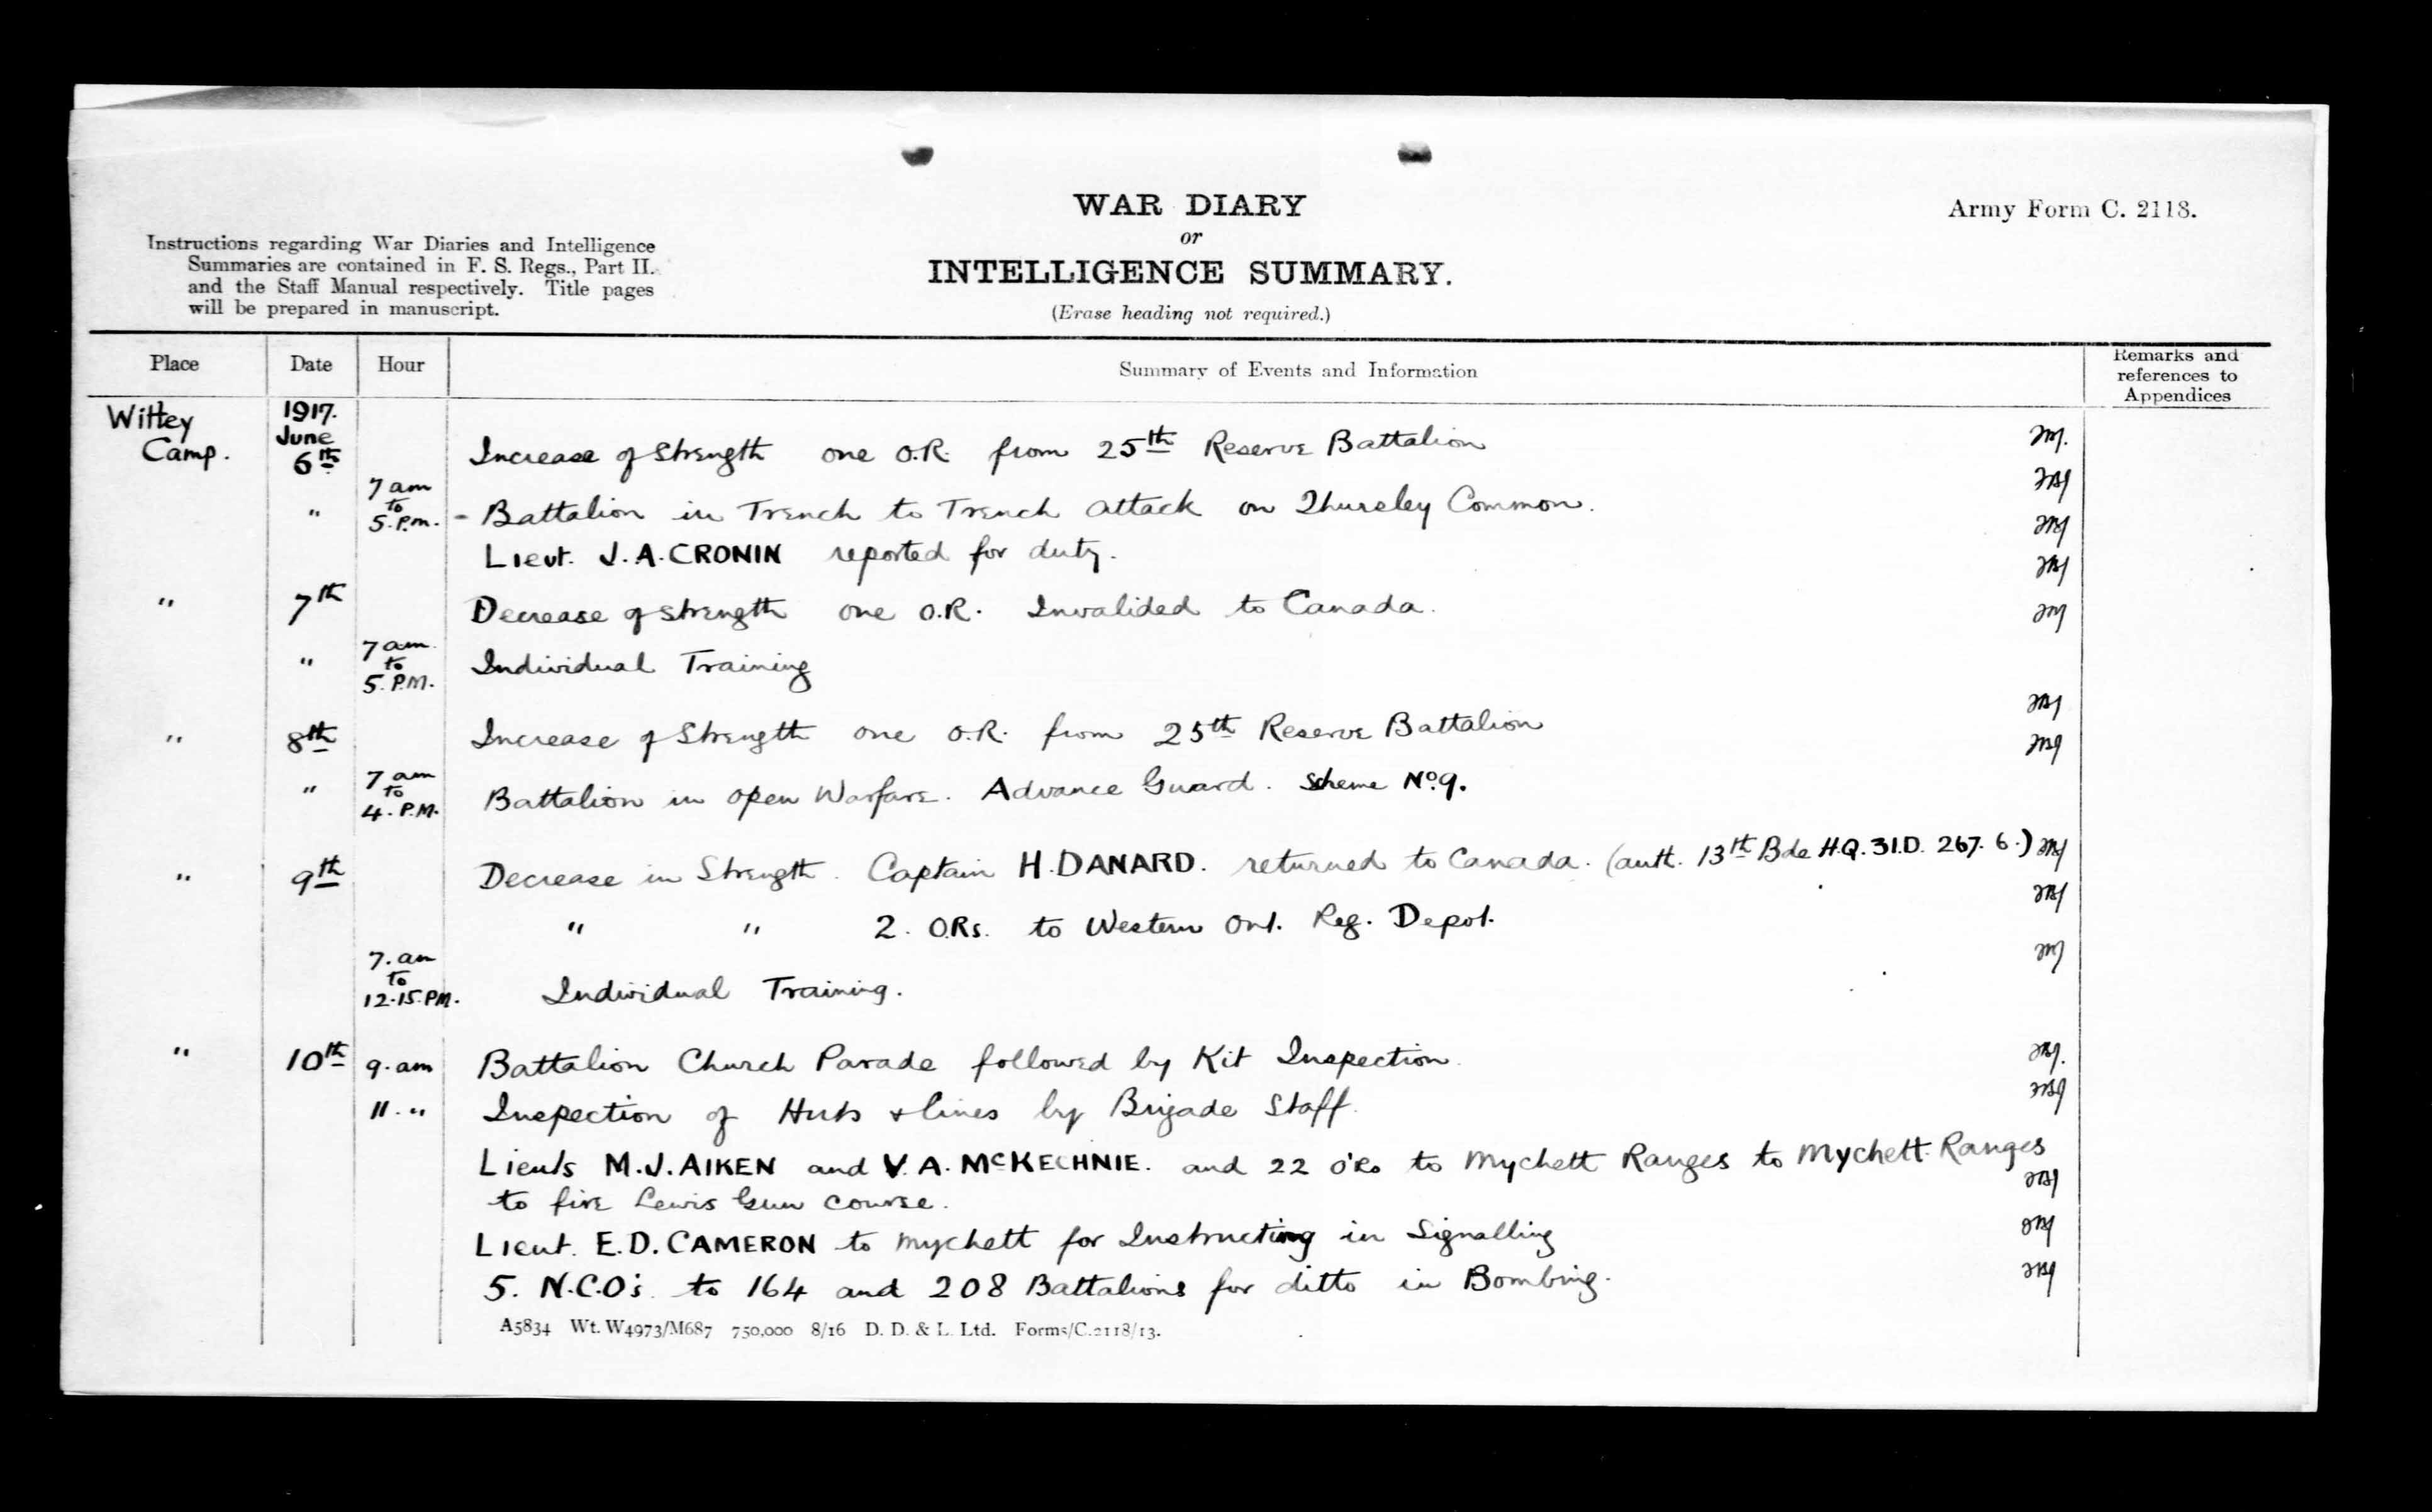 WAR DIARY
or
INTELLIGENCE SUMMARY.
(Erase heading not required.)
Army Form C. 2118.
Instructions regarding War Diaries and Intelligence
Summaries are contained in F. S. Regs., Part II.
and the Staff Manual respectively. Title pages
will be prepared in manuscript.
Place Date Hour Summary of Events and Information Remarks and references to Appendices
Wittey Camp. 1917. June 6th Increase of Strength one O.R. from 25th Reserve Battalion
" 7 am to 5. P.m. - Battalion in Trench to Trench attack on Thursley Common.
Lieut. J.A. CRONIN reported for duty.
" 7th Decrease of strength one O.R. Invalided to Canada.
" 7 am. to 5. P.M. Individual Training
" 8th Increase of Strength one O.R. from 25th Reserve Battalion
" 7 am to 4. P.M. Battalion in open Warfare. Advance Guard. Scheme No. 9.
" 9th Decrease in Strength. Captain H. DANARD. returned to Canada. (auth. 13th Bde H.Q. 31.D. 267. 6.)
" " 2. ORs. to Western Ont. Reg. Depot.
7. am to 12.15. PM. Individual Training.
" 10th 9. am Battalion Church Parade followed by Kit Inspection.
11. " Inspection of Huts + lines by Brigade Staff.
Lieuts M.J. AIKEN and V.A. McKECHNIE. and 22 O'Rs to Mychett Ranges to Mychett Ranges
to fire Lewis Gun course.
Lieut. E.D. CAMERON to Mychett for Instructing in Signalling
5. N.C.O's. to 164 and 208 Battalions for ditto in Bombing.
A5834 Wt. W4973/M687 750,000 8/16 D. D. & L. Ltd. Forms/C.2118/13.